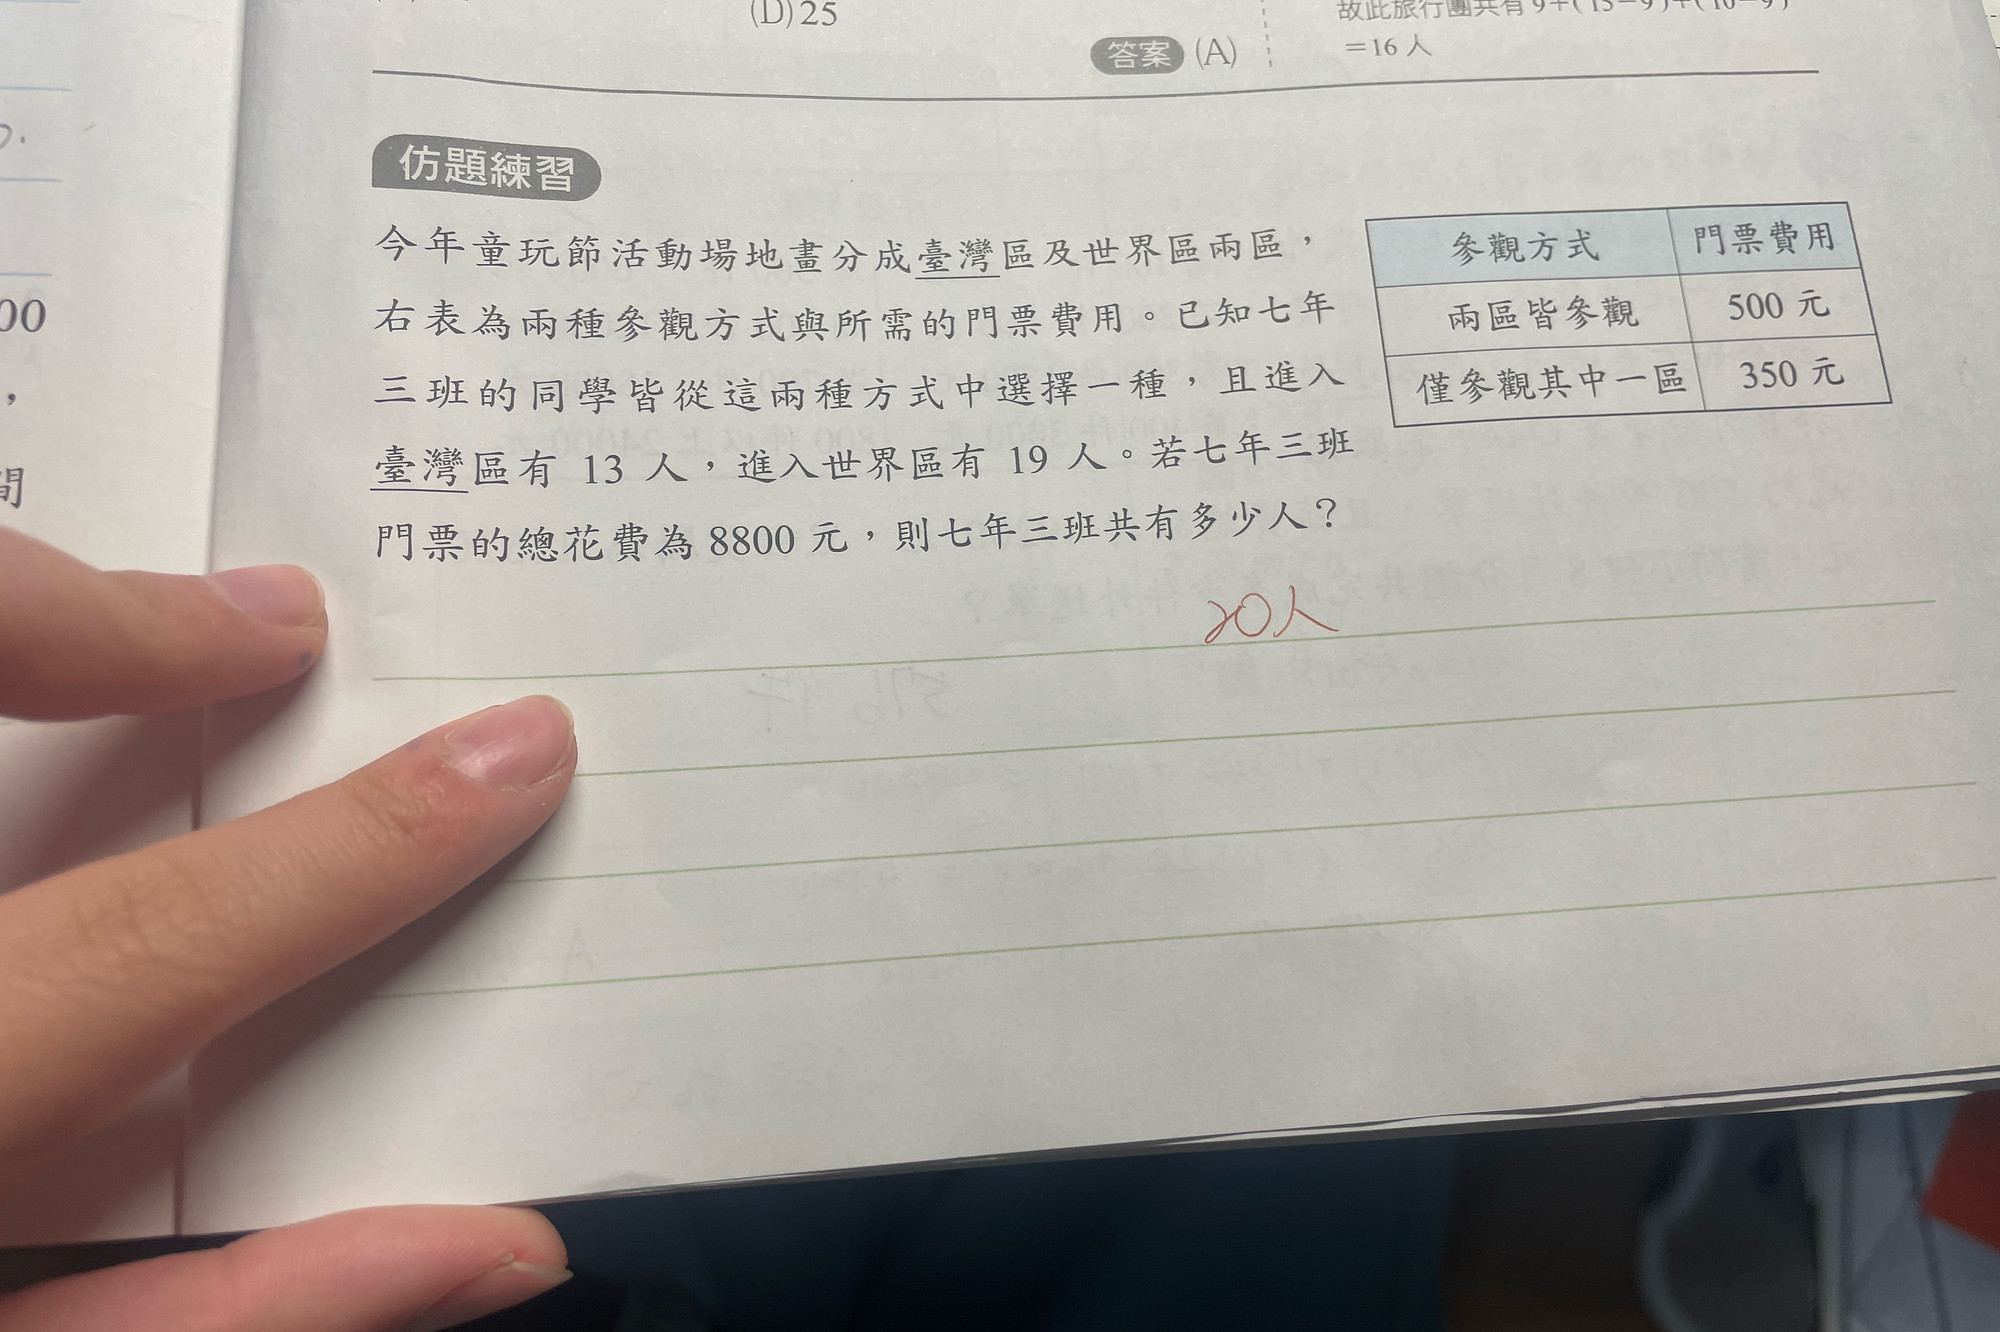 (D)25
故此旅行團共有9+(15−9)+(10−9)
答案 (A)
=16人
仿題練習
今年童玩節活動場地畫分成臺灣區及世界區兩區，
右表為兩種參觀方式與所需的門票費用。已知七年
三班的同學皆從這兩種方式中選擇一種，且進入
臺灣區有 13 人，進入世界區有 19 人。若七年三班
門票的總花費為 8800 元，則七年三班共有多少人？
參觀方式 門票費用
兩區皆參觀 500 元
僅參觀其中一區 350 元
20人
00
，
間